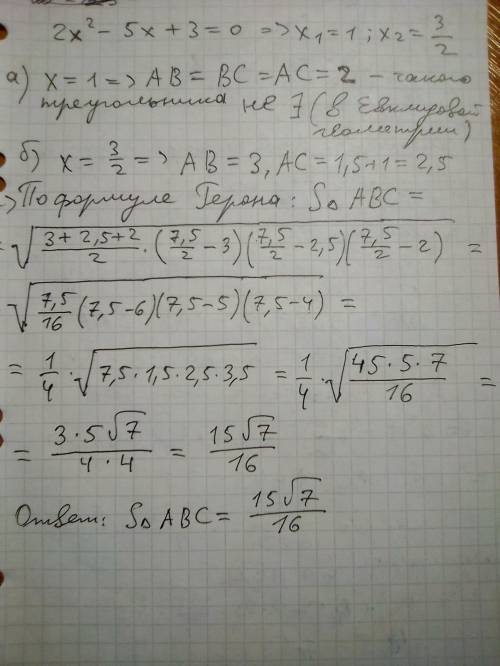 2x² - 5x + 3 = 0 => x₁ = 1 ; x₂ = 3/2
а) x = 1 => AB = BC = AC = 2 - такого
треугольника не ∃ (в Евклидовой
геометрии)
б) x = 3/2 => AB = 3, AC = 1,5 + 1 = 2,5
=> По формуле Герона: S△ ABC =
= √((3 + 2,5 + 2)/2 · (7,5/2 - 3)(7,5/2 - 2,5)(7,5/2 - 2)) =
√(7,5/16 (7,5 - 6)(7,5 - 5)(7,5 - 4)) =
= 1/4 · √(7,5 · 1,5 · 2,5 · 3,5) = 1/4 · √((45 · 5 · 7)/16) =
= (3 · 5√7)/(4 · 4) = 15√7/16
Ответ: S△ ABC = 15√7/16